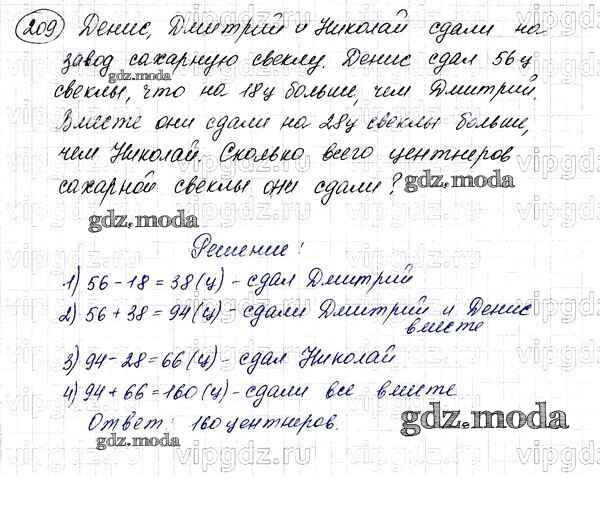 209) Денис, Дмитрий и Николай сдали на
завод сахарную свеклу. Денис сдал 56ц
свеклы, что на 18ц больше, чем Дмитрий.
Вместе они сдали на 28ц свеклы больше,
чем Николай. Сколько всего центнеров
сахарной свеклы они сдали?
Решение:
1) 56 - 18 = 38 (ц) - сдал Дмитрий
2) 56 + 38 = 94 (ц) - сдали Дмитрий и Денис
вместе
3) 94 - 28 = 66 (ц) - сдал Николай
4) 94 + 66 = 160 (ц) - сдали все вместе
Ответ: 160 центнеров.
gdz.moda
gdz.moda
gdz.moda
gdz.moda
gdz.moda
gdz.moda
vipgdz.ru